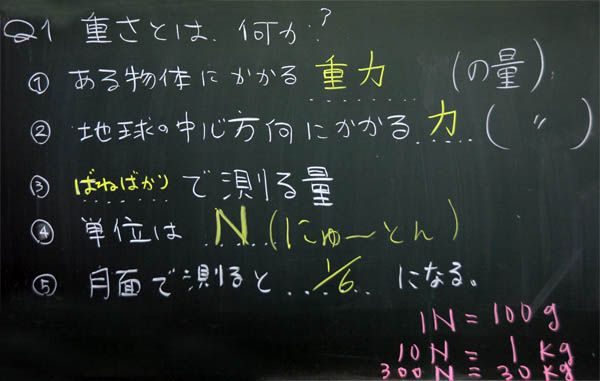 Q1 重さとは、何か?
① ある物体にかかる 重力 (の量)
② 地球の中心方向にかかる 力 ( 〃 )
③ ばねばかり で測る量
④ 単位は N (にゅーとん)
⑤ 月面で測ると 1/6 になる。
1N = 100g
10N = 1kg
300N = 30kg